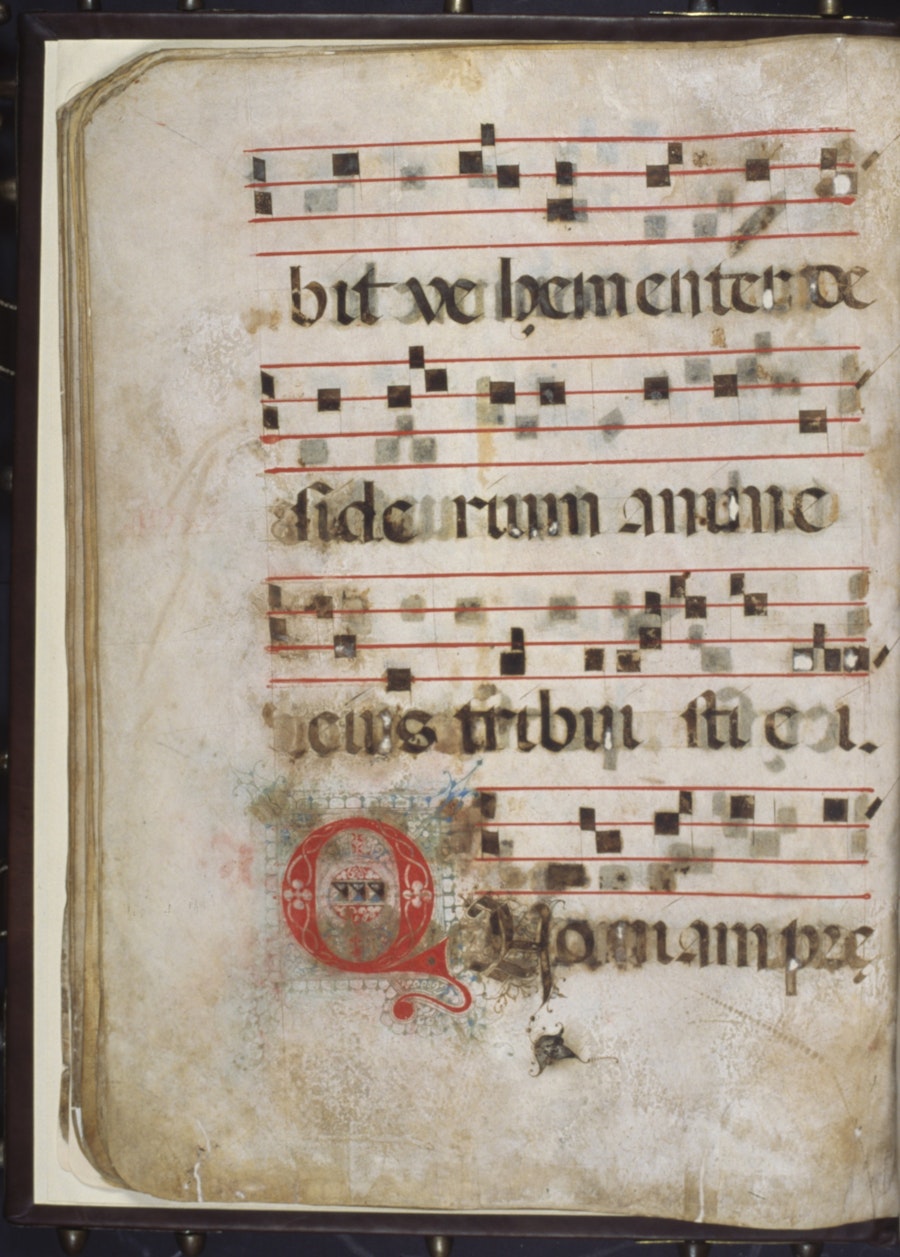 bit ve hementer de
side rium anime
eius tribui sti ei.
QVoniam pre